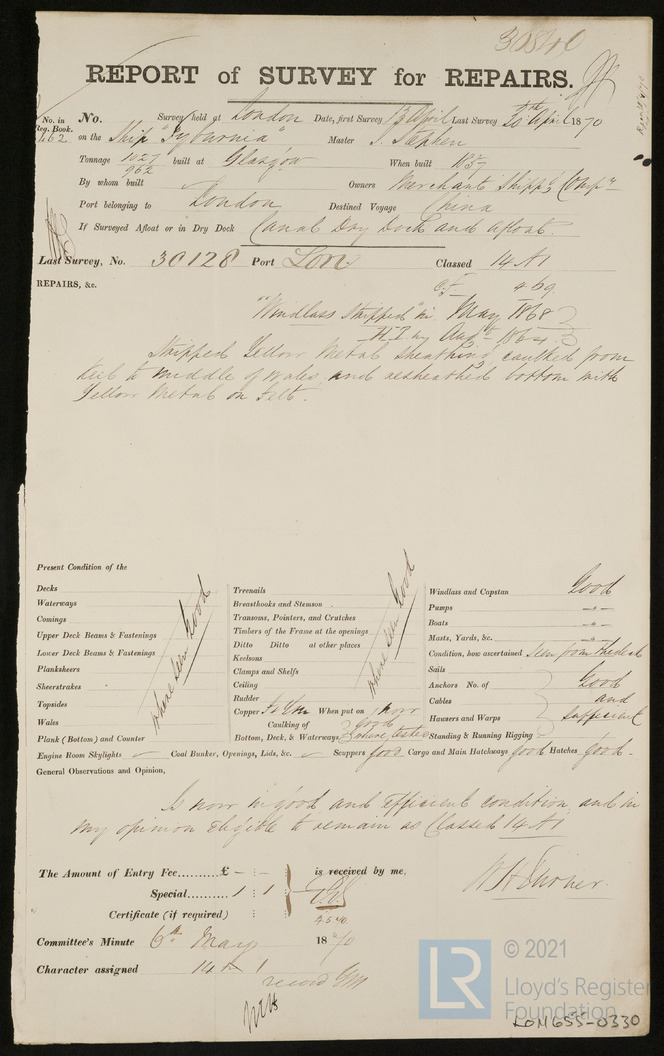 30840
REPORT of SURVEY for REPAIRS.
No. in Reg. Book. No. Survey held at London Date, first Survey 13 April Last Survey 20th April 1870
462 on the Ship "Tyburnia" Master J. Stephen
Tonnage 1027 / 962 built at Glasgow When built 1857
By whom built Owners Merchant Shippg Compy
Port belonging to London Destined Voyage China
If Surveyed Afloat or in Dry Dock Canal Dry Dock and afloat.
Last Survey, No. 30128 Port Lon Classed 14 A1
REPAIRS, &c. 4.69
"Windlass Shipped" in May 1868
Augt 1864
Stripped Yellow Metal Sheathing, caulked from
keel to middle of wales, and resheathed bottom with
Yellow Metal on Felt.
Present Condition of the
Decks
Waterways
Comings
Upper Deck Beams & Fastenings
Lower Deck Beams & Fastenings
Planksheers
Sheerstrakes
Topsides
Wales
Plank (Bottom) and Counter
where seen Good
Treenails
Breasthooks and Stemson
Transoms, Pointers, and Crutches
Timbers of the Frame at the openings
Ditto Ditto at other places
Keelsons
Clamps and Shelfs
Ceiling
Rudder
where seen Good
Copper When put on now
Caulking of good
Bottom, Deck, & Waterways where tested
Windlass and Capstan Good
Pumps -"-
Boats -"-
Masts, Yards, &c. -"-
Condition, how ascertained Seen from the deck
Sails
Anchors No. of Good
Cables and
Hawsers and Warps Sufficient
Standing & Running Rigging
Engine Room Skylights Coal Bunker, Openings, Lids, &c. Scuppers good Cargo and Main Hatchways good Hatches good.
General Observations and Opinion,
Is now in good and efficient condition, and in
my opinion eligible to remain as Classed 14 A1
The Amount of Entry Fee..........£ - : - : is received by me.
Special.......... 1 : 1 :
Certificate (if required) : :
Committee's Minute 6th May 1870
Character assigned 14 A 1
record YM
© 2021
LR
Lloyd's Register
Foundation
LON655-0330